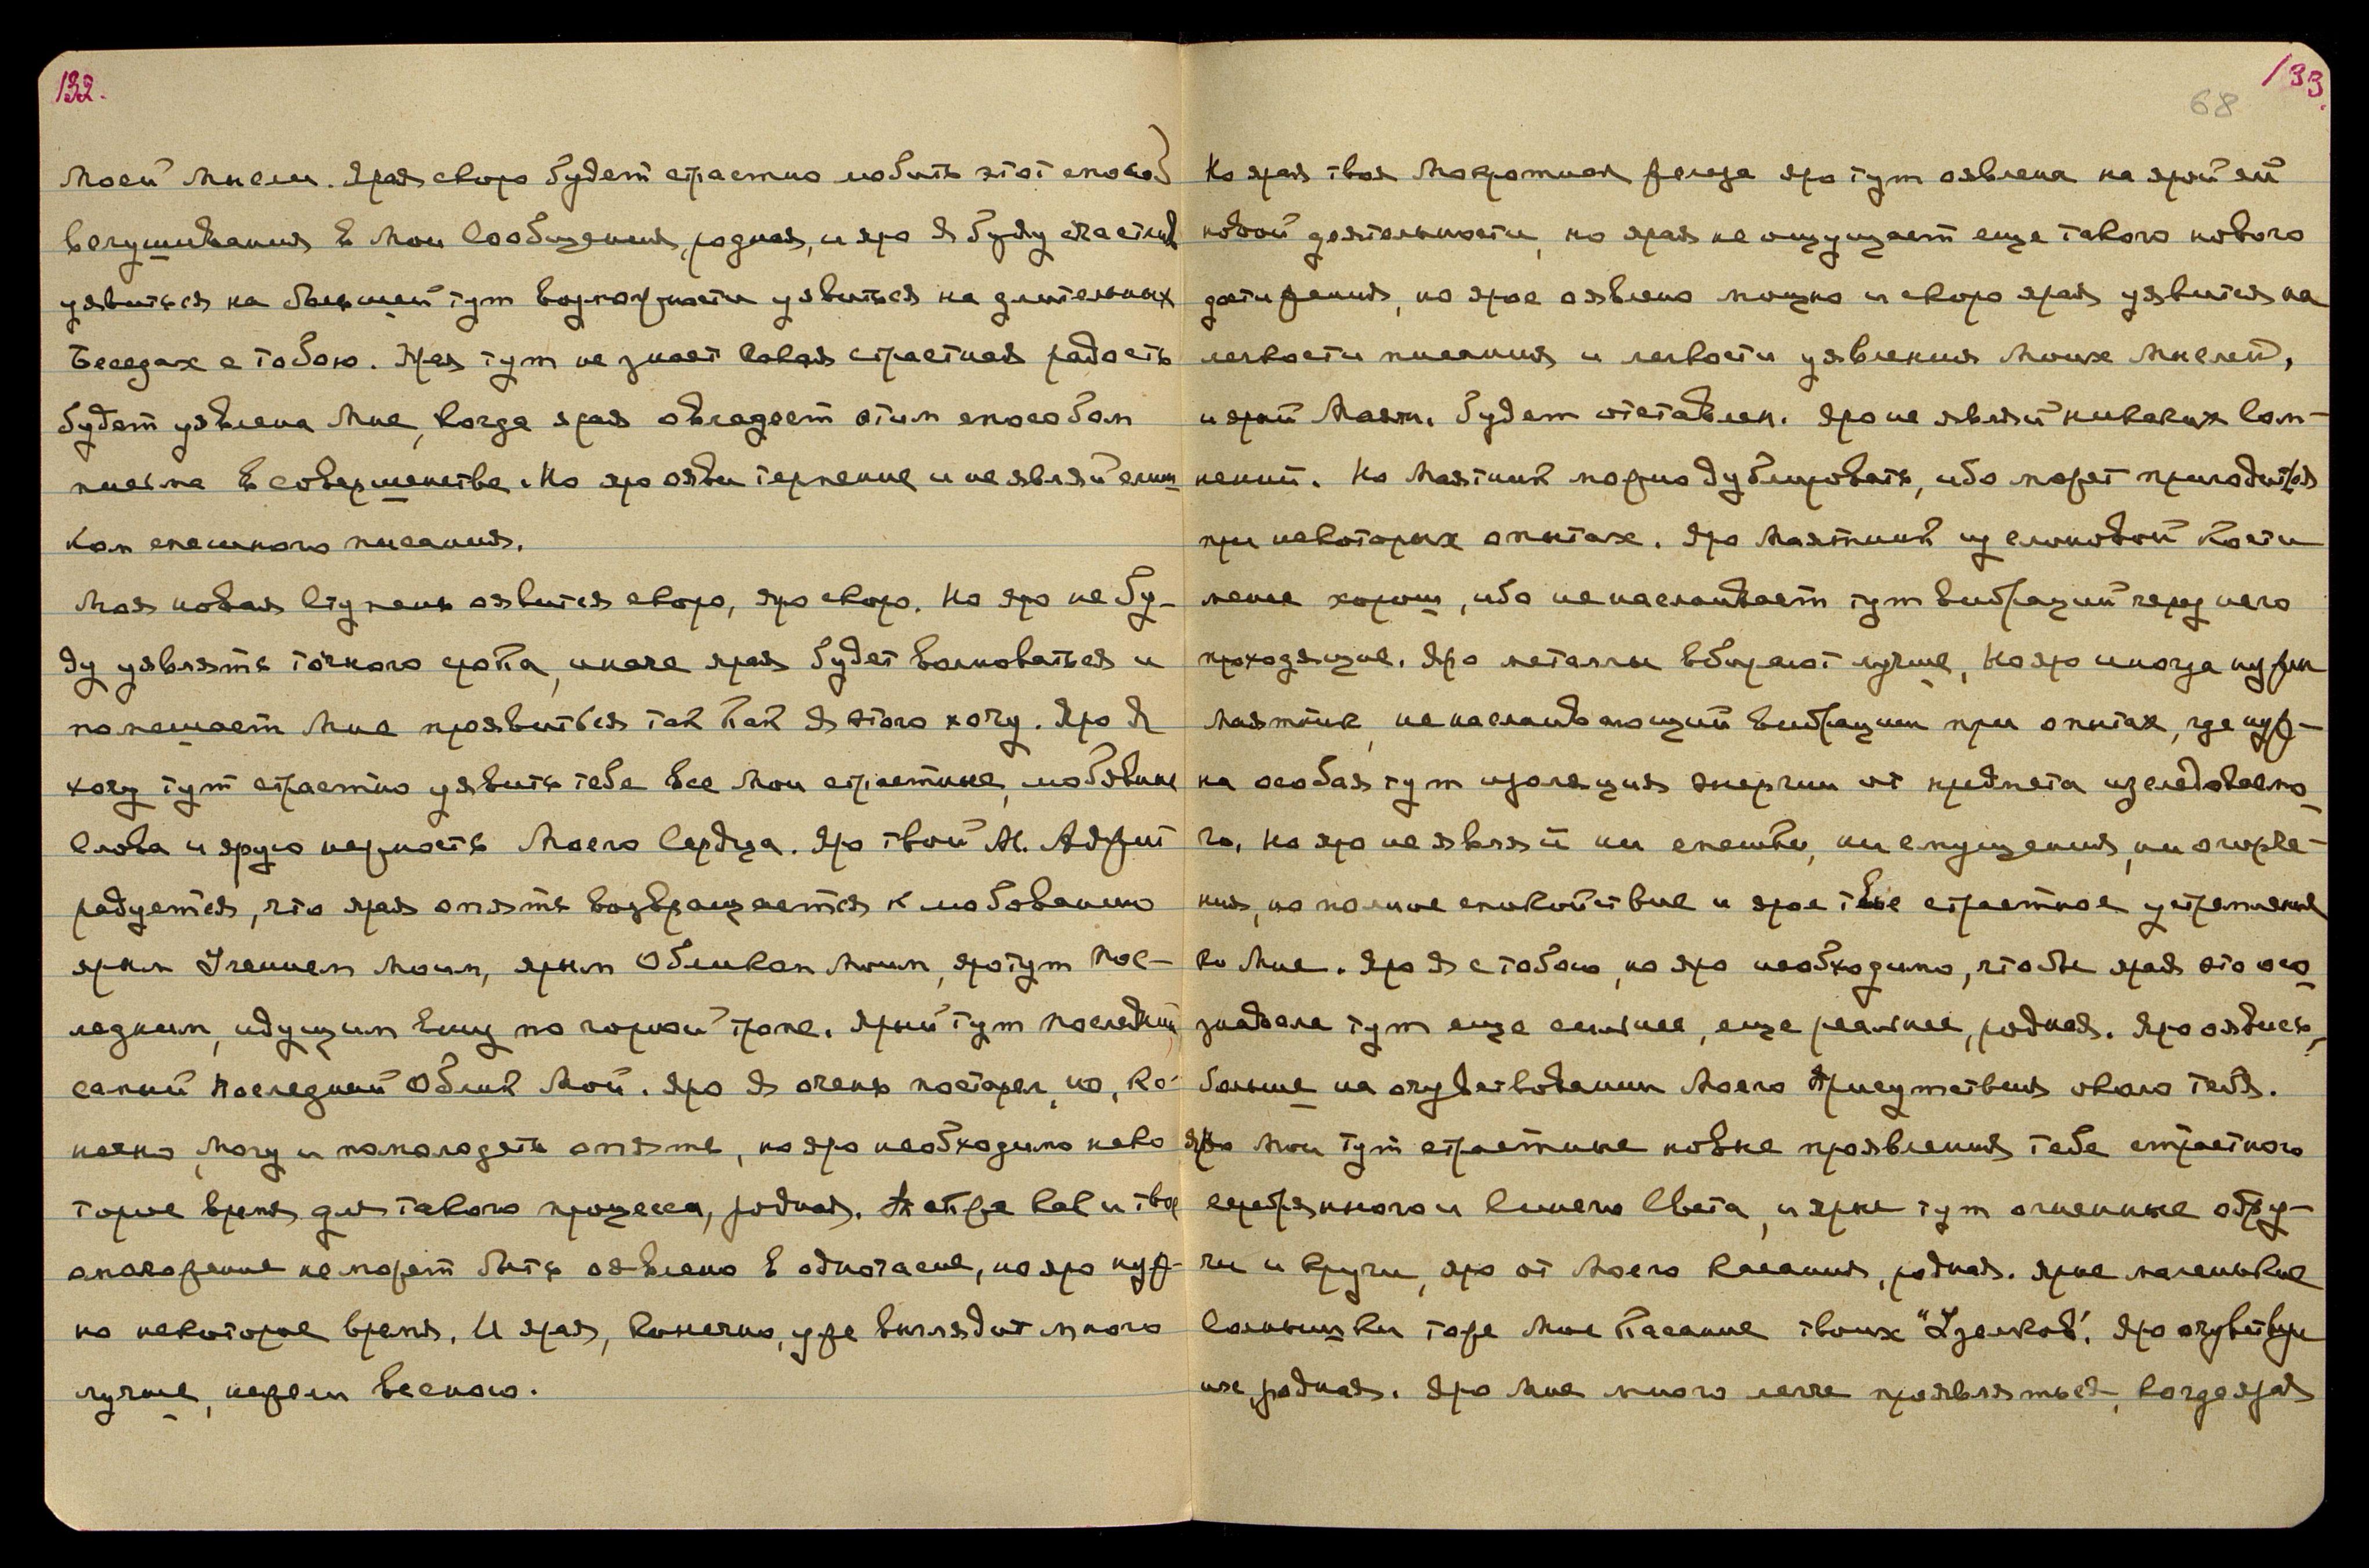 132.
Моей Мысли. Ярая скоро будет страстно любить этот способ
вслушивания в Мои Сообщения, родная, и яро Я буду счастлив
уявиться на большей тут возможности уявиться на длительных
Беседах с тобою. Ярая тут не знает какая страстная радость
будет уявлена Мне, когда ярая овладеет этим способом
письма в совершенстве. Но яро ояви терпение и не являй слиш
ком спешного писания.
Моя новая Ступень оявится скоро, яро скоро. Но яро не бу-
ду уявлять точного срока, иначе ярая будет волноваться и
помешает Мне проявиться так как Я этого хочу. Яро Я
хочу тут страстно уявить тебе все Мои страстные, любовные
Слова и ярую нежность Моего Сердца. Яро твой М.
радуется, что ярая опять возвращается к любованию
ярым Учением Моим, ярым Обликом Моим, яро тут Пос-
ледним, идущим вниз по горной тропе. Ярый тут Последний
самый Последний Облик Мой. Яро Я очень постарел, но, ко-
нечно, Могу и помолодеть опять, но яро необходимо неко
торое время для такого процесса, родная. Также как и твое
омоложение не может быть оявлено в одночасие, но яро нуж-
но некоторое время. И ярая, конечно, уже выглядит много
лучше, нежели весною.
133.
68
Но ярая твоя Мокротная железа яро тут оявлена на ярой ей
новой деятельности, но ярая не ощущает еще такого нового
достижения, но ярое оявлено мощно и скоро ярая уявится на
легкости писания и легкости уявления Моих Мыслей,
и ярый Маятн. будет отставлен. Яро не являй никаких Сом-
нений. Но Маятник можно дублировать, ибо может пригодиться
при некоторых опытах. Яро Маятник из слоновой кости
менее хорош, ибо не наслаивает тут вибраций через него
проходящие. Яро металлы вбирают лучше, Но яро иногда нужен
маятник, не наслаивающий вибрации при опытах, где нуж-
на особая тут изоляция энергии от предмета изследоваемо
го. Но яро не являй ни спешки, ни смущения, ни огорче-
ния, но полное спокойствие и ярое твое страстное устремление
ко Мне. Яро Я с тобою, но яро необходимо, чтобы ярая это осо
знавала тут еще сильнее, еще реальнее, родная. Яро оявись,
больше на очувствовании Моего Присутствия около тебя.
Яро Мои тут страстные новые проявления тебе страстного
серебрянного и Синего Света, и ярые тут огненные обру-
чи и круги, яро от Моего Касания, родная. Ярые маленькие
Солнышки тоже Мое Касание твоих "Узелков". Яро очувствуй
их, родная. Яро Мне много легче проявляться, когда ярая